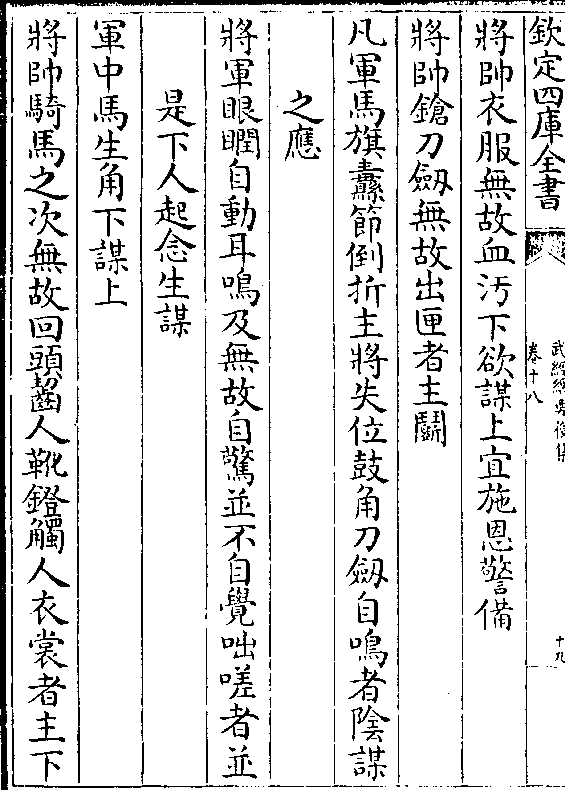 欽定四庫全書
卷十八
十九
將帥衣服無故血汚下欲謀上宜施恩警備
將帥鎗刀劔無故出匣者主鬭
凡軍馬旗纛節倒折主將失位鼓角刀劔自鳴者陰謀
之應
將軍眼瞤自動耳鳴及無故自驚並不自覺咄嗟者並
是下人起念生謀
軍中馬生角下謀上
將帥騎馬之次無故回頭齧人靴鐙觸人衣裳者主下